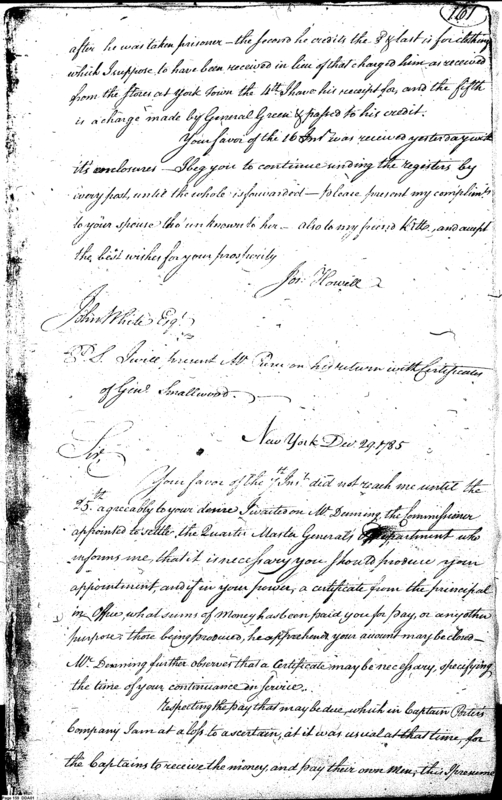 161
after he was taken prisoner – the second he credits the 3d & last is for clothing
which I suppose to have been received in lieu of that charged him as received
from the stores at York Town the 4th I have his receipt for, and the fifth
is a charge made by General Green & passed to his credit.
Your favor of the 16 Inst was received yesterday with
its enclosures – I beg you to continue sending the registers by
every post, until the whole is forwarded – please present my complimts
to your spouse tho' unknown to her – also to my friend Kilty, and accept
the best wishes for your prosperity
Jos: Howell
John White Esqr
P.S. I will present Mr on his return with Certificates
of Genl Smallwood.
New York Decr 29. 1785
Sir,
Your favor of the 7th Inst did not reach me until the
25th agreeably to your desire I waited on Mr Denning, the Commissioner
appointed to settle the Quarter Master General's department who
informs me, that it is necessary you should produce your
appointment, and if in your power, a certificate from the principal
in Office what sums of money has been paid you for pay, or any other
purpose; those being produced, he apprehends your account may be closed –
Mr Denning further observes that a Certificate may be necessary, specifying
the time of your continuance in service.
Respecting the pay that may be due, which in Captain Porter's
Company I am at a loss to ascertain, as it was usual at that time, for
the Captains to receive the money, and pay their own Men; this I presume